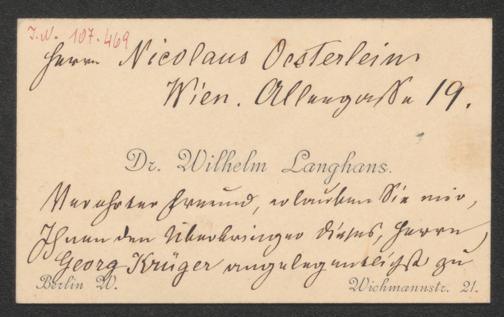 I.N. 107.469
Herrn Nicolaus Oesterlein
Wien. Alleegasse 19.
Dr. Wilhelm Langhans.
Verehrter Freund, erlauben Sie mir,
Ihnen den Überbringer dieses, Herrn
Georg Krüger angelegentlichst zu
Berlin W. Wichmannstr. 21.